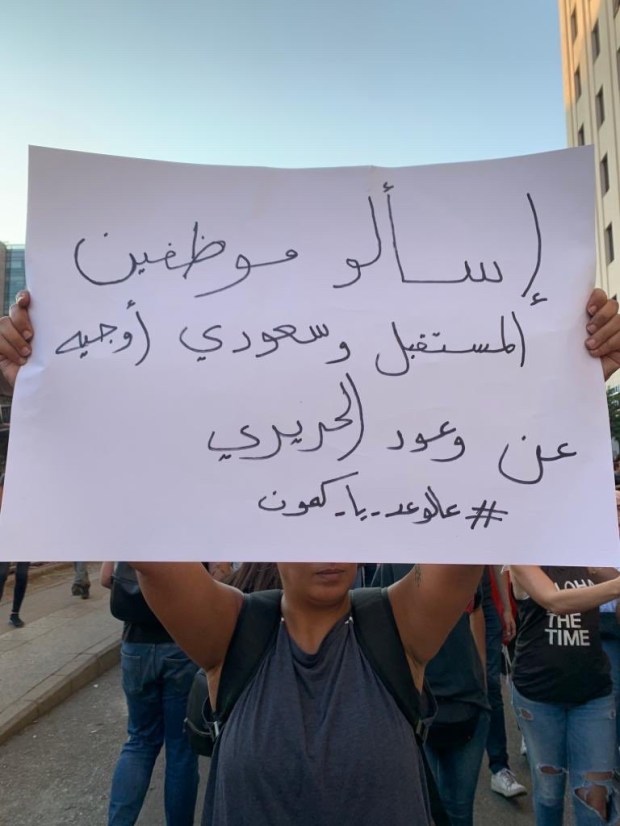 إسألو موظفين
المستقبل وسعودي أوجيه
عن وعود الحريري
#عالوعد_يا_كمون
ALOHA
THE
TIME